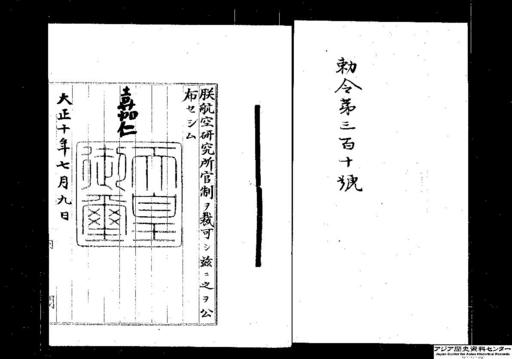 勅令第三百十號
朕航空研究所官制ヲ裁可シ茲ニ之ヲ公
布セシム
嘉仁
天皇
御璽
大正十年七月九日
アジア歴史資料センター
Japan Center for Asian Historical Records